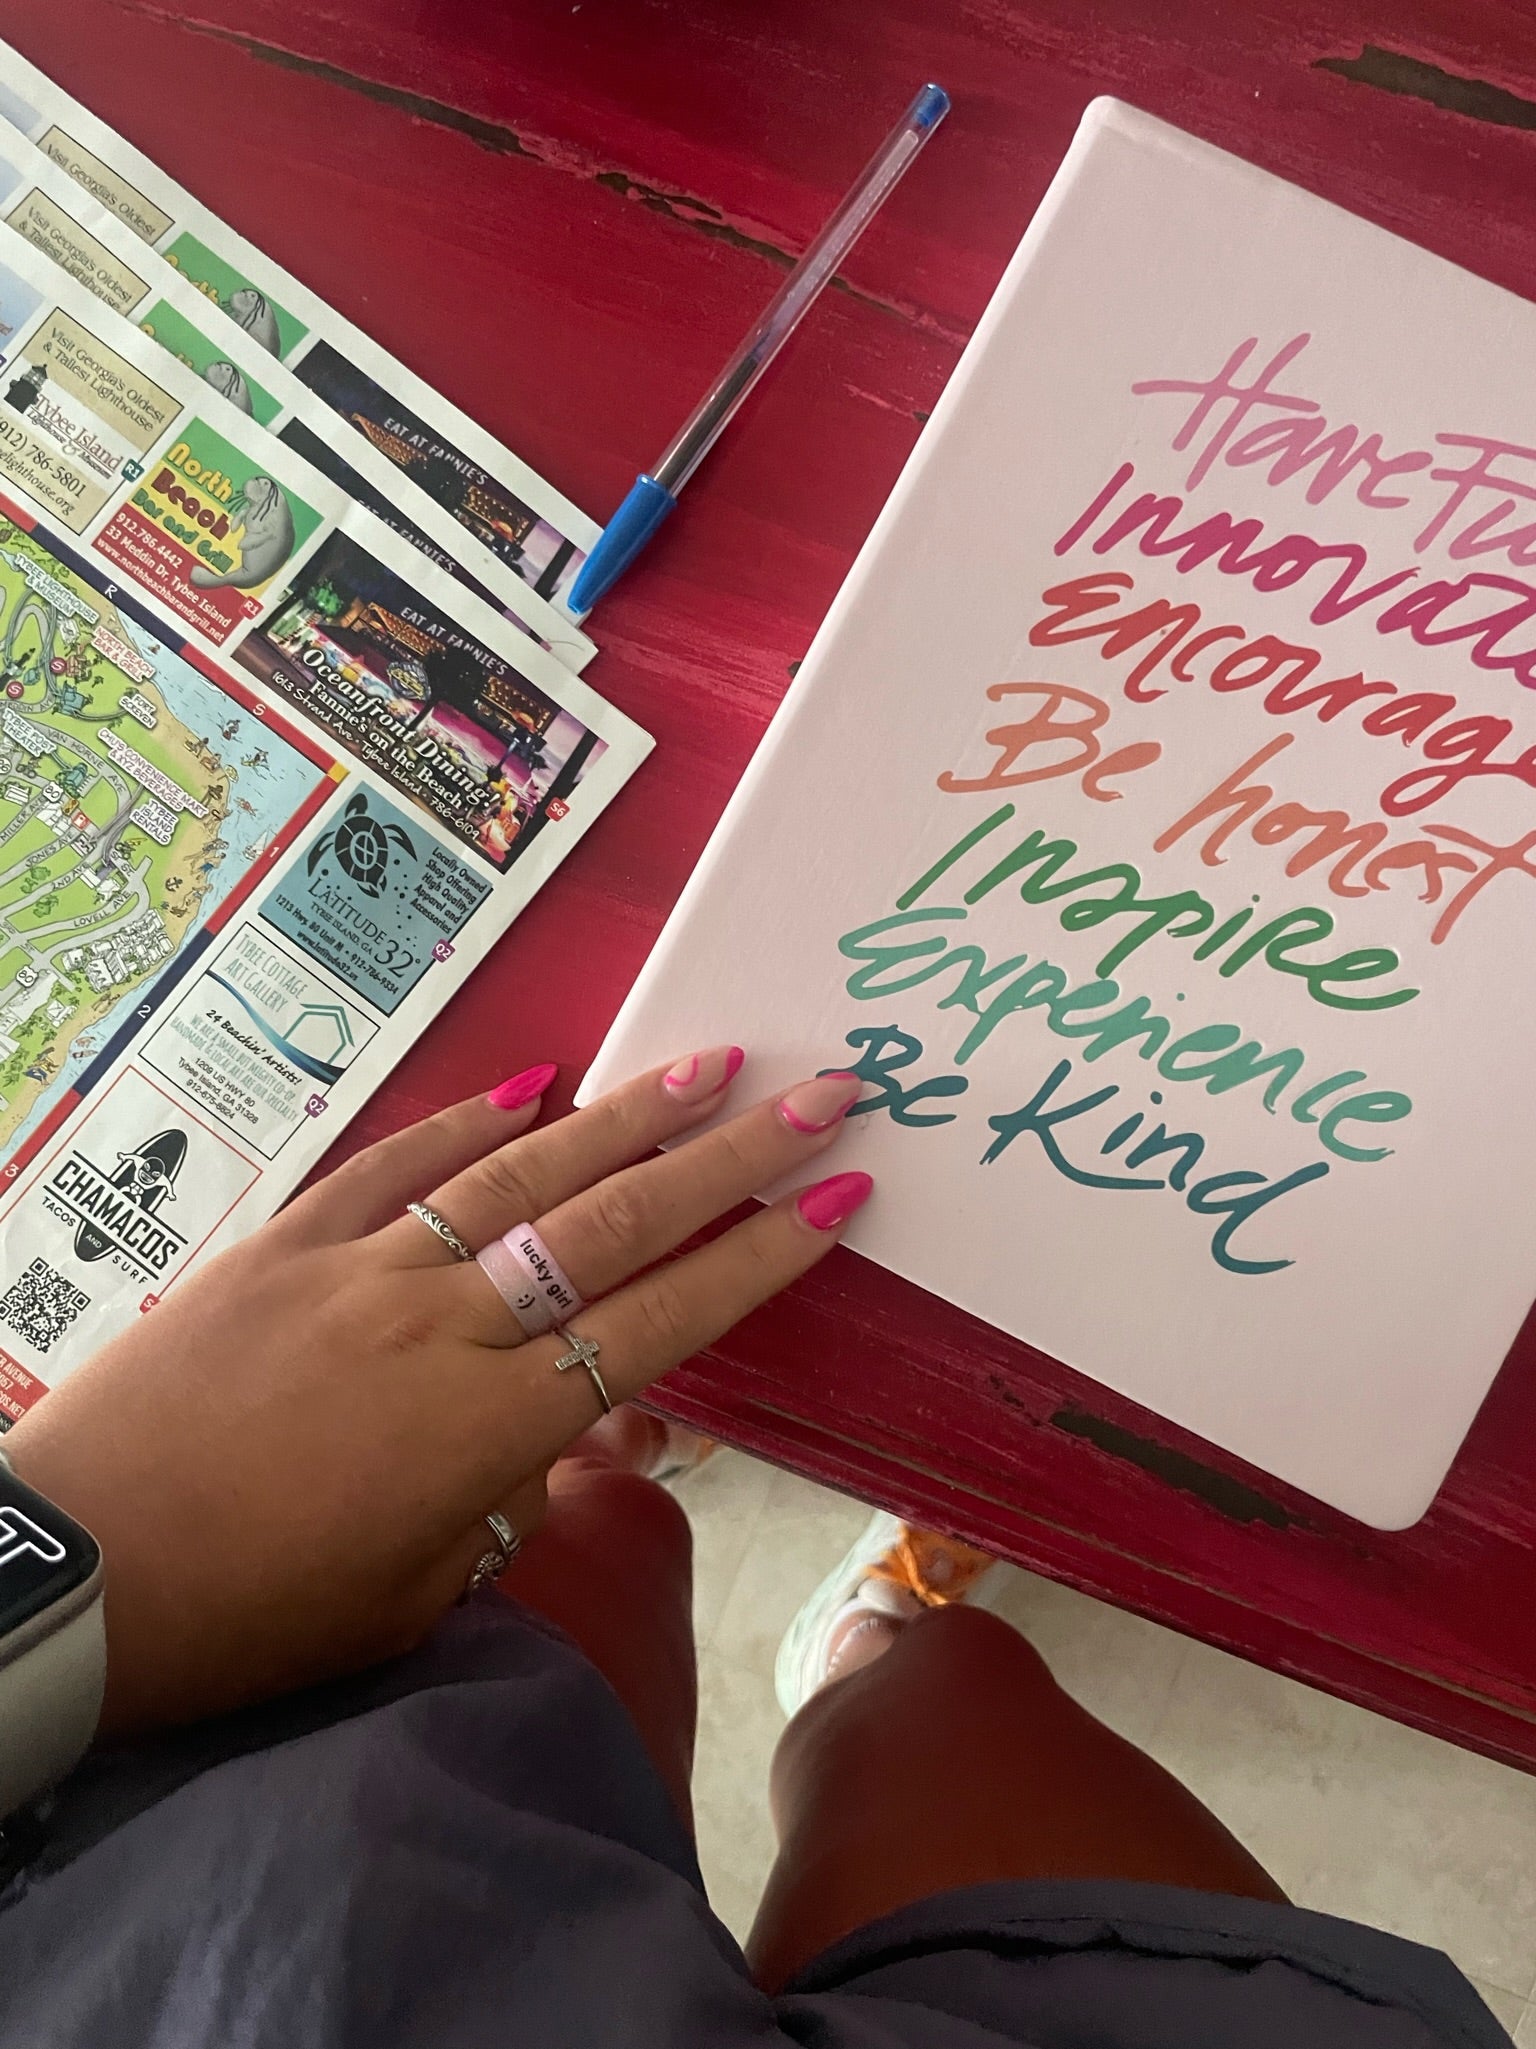 Visit Georgia's Oldest
Visit Georgia's Oldest
& Tallest Lighthouse
Visit Georgia's Oldest
& Tallest Lighthouse
Tybee Island
Lighthouse & Museum
(912) 786-5801
R1
North
Beach
Bar and Grill
912.786.4442
33 Meddin Dr, Tybee Island
www.northbeachbarandgrill.net
R1
EAT AT FANNIE'S
EAT AT FANNIE'S
EAT AT FANNIE'S
Oceanfront Dining!
Fannie's on the Beach
1613 Strand Ave - Tybee Island - 786-6109
S6
R
S
1
2
3
TYBEE LIGHTHOUSE
& MUSEUM
NORTH BEACH
BAR & GRILL
FORT
SCREVEN
TYBEE POST
THEATER
VAN HORNE AVE
CHU'S CONVENIENCE MART
& XYZ BEVERAGES
TYBEE
ISLAND
RENTALS
80
MILLER AVE
JONES AVE
2ND AVE
LOVELL AVE
80
LATITUDE 32°
TYBEE ISLAND, GA
Locally Owned
Shop Offering
High Quality
Apparel and
Accessories
1213 Hwy. 80 Unit M • 912-786-9334
www.latitude32.us
Q2
TYBEE COTTAGE
ART GALLERY
24 Beachin' Artists!
WE ARE A SMALL BUT MIGHTY CO-OP.
HANDMADE & LOCAL ART ARE OUR SPECIALTY.
1209 US HWY 80
Tybee Island, GA 31328
912-675-8824
Q2
CHAMACOS
TACOS AND SURF
lucky girl
:)
Have Fu
Innovate
Encourage
Be honest
Inspire
Experience
Be Kind